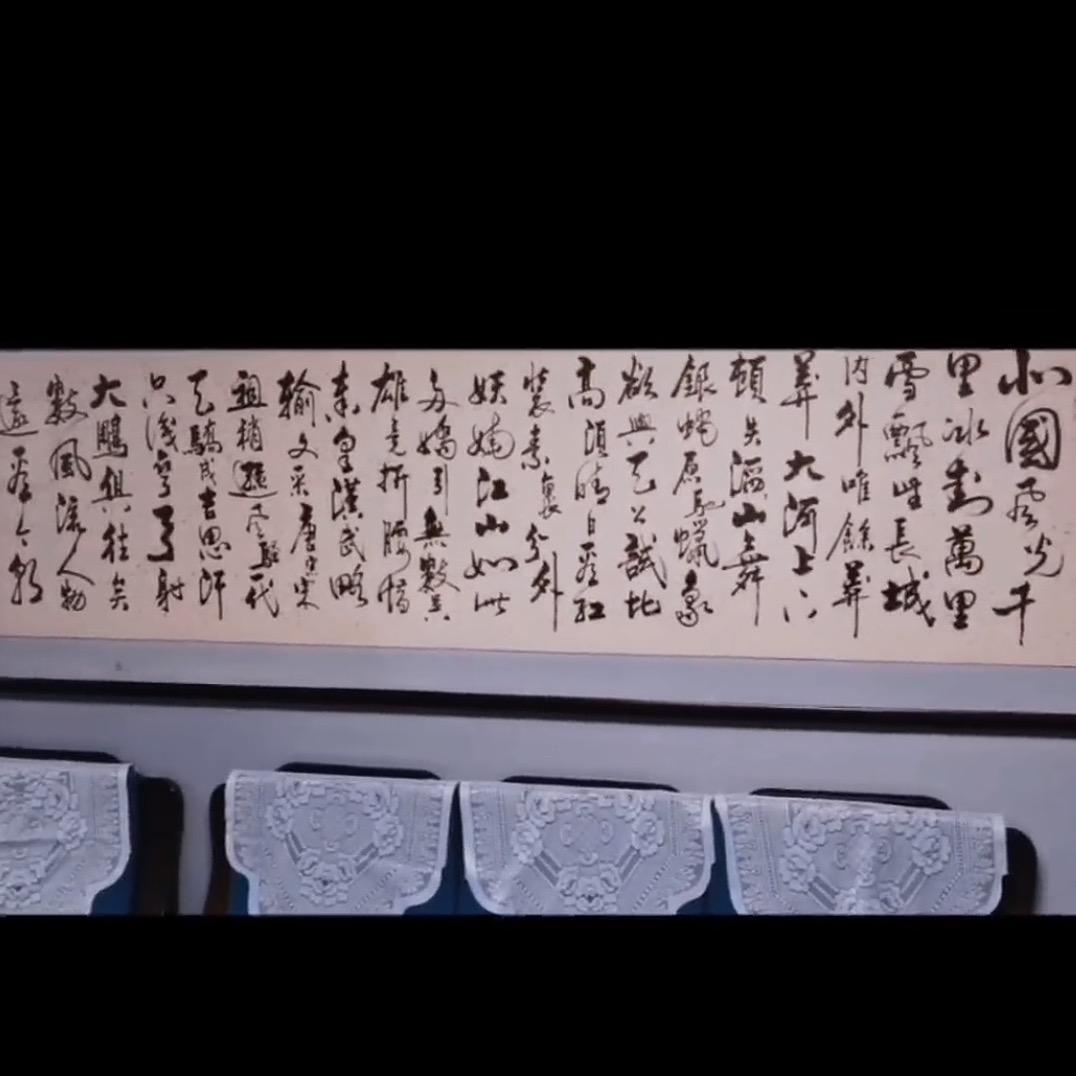 北國風光千
里冰封萬里
雪飄望長城
内外唯餘莽
莽大河上下
頓失滔滔山舞
銀蛇原馳蠟象
欲與天公試比
高須晴日看紅
裝素裹分外
妖嬈江山如此
多嬌引無數英
雄竞折腰惜
秦皇漢武略
輸文采唐宗宋
祖稍遜風騷一代
天驕成吉思汗
只識彎弓射
大鵰俱往矣
數風流人物
還看今朝